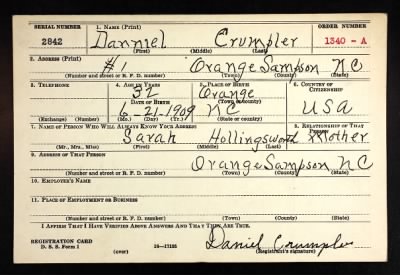 SERIAL NUMBER 1. NAME (Print) ORDER NUMBER
2842 Danniel Crumpler 1340-A
(First) (Middle) (Last)
2. ADDRESS (Print)
#1 Orange Sampson NC
(Number and street or R. F. D. number) (Town) (County) (State)
3. TELEPHONE 4. AGE IN YEARS 5. PLACE OF BIRTH 6. COUNTRY OF CITIZENSHIP
31 Orange
DATE OF BIRTH (Town or county)
6-21-1909 NC USA
(Exchange) (Number) (Mo.) (Day) (Yr.) (State or country)
7. NAME OF PERSON WHO WILL ALWAYS KNOW YOUR ADDRESS 8. RELATIONSHIP OF THAT PERSON
Sarah Hollingsword Mother
(Mr., Mrs., Miss) (First) (Middle) (Last)
9. ADDRESS OF THAT PERSON
Orange Sampson NC
(Number and street or R. F. D. number) (Town) (County) (State)
10. EMPLOYER'S NAME
11. PLACE OF EMPLOYMENT OR BUSINESS
(Number and street or R. F. D. number) (Town) (County) (State)
I AFFIRM THAT I HAVE VERIFIED ABOVE ANSWERS AND THAT THEY ARE TRUE.
REGISTRATION CARD
D. S. S. Form 1 (over) Daniel Crumpler
(Registrant's signature)